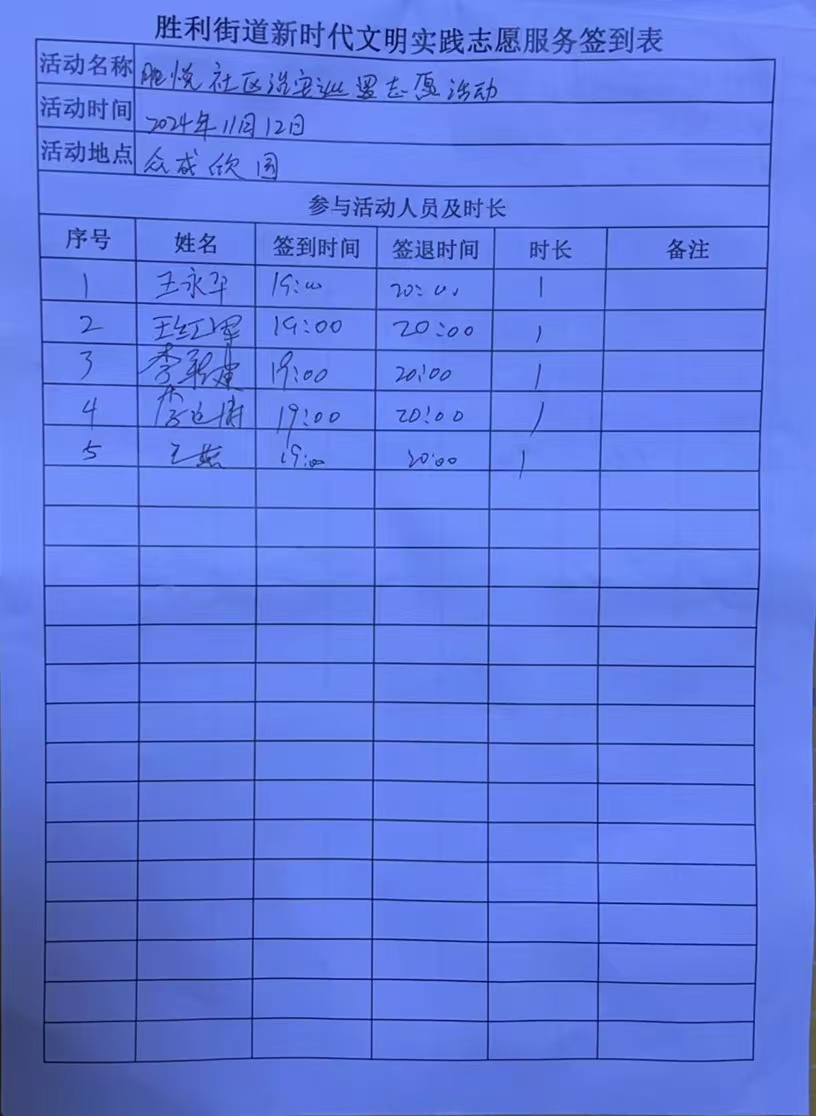 胜利街道新时代文明实践志愿服务签到表
活动名称 胜悦社区治安巡逻志愿活动
活动时间 2024年11月12日
活动地点 众成欣园
参与活动人员及时长
序号 姓名 签到时间 签退时间 时长 备注
1 王永华 19:00 20:00 1
2 王红军 19:00 20:00 1
3 李新建 19:00 20:00 1
4 19:00 20:00 1
5 王燕 19:00 20:00 1